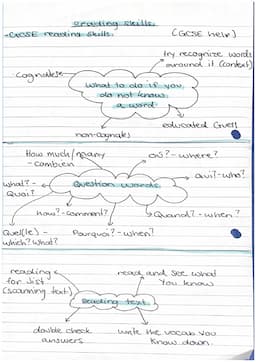 Reading Skills
-GCSE reading skills.
(GCSE help)
try recognize words
around it (context)
cognates
What to do if you
do not know
a word
educated guess
non-cognates
How much/many
- combien
où? - where?
what? -
Quoi?
Question words
qui? - who?
How? - comment?
Quand? - when?
Quel(le) -
which? what?
Pourquoi? - when?
reading
for gist
(scanning text)
read and see what
you know
Reading text
double check
answers
write the vocab you
know down.